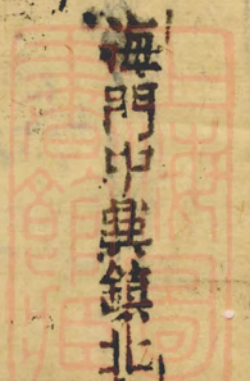 海門中興鎮北